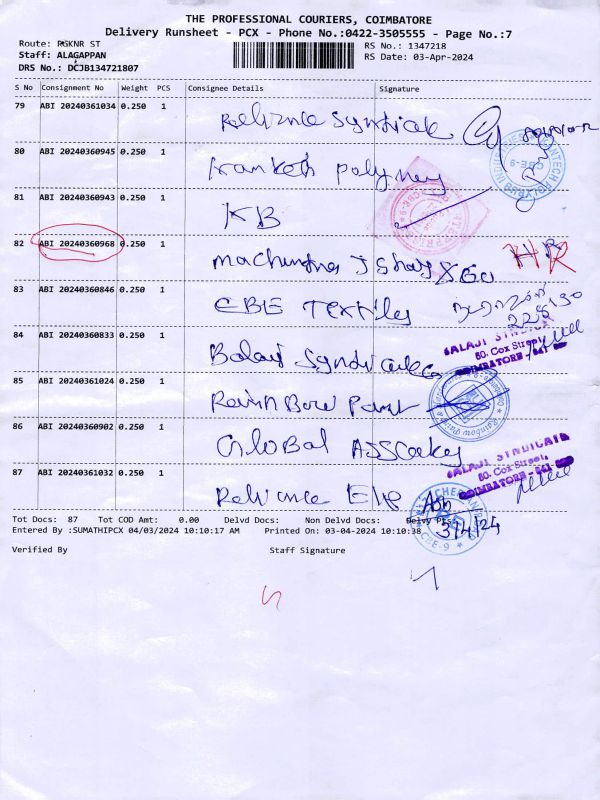 THE PROFESSIONAL COURIERS, COIMBATORE
Delivery Runsheet - PCX - Phone No.:0422-3505555 - Page No.:7
Route: RGKNR ST
RS No.: 1347218
Staff: ALAGAPPAN
RS Date: 03-Apr-2024
DRS No.: DCJB134721807
S No Consignment No Weight PCS Consignee Details Signature
79 ABI 20240361034 0.250 1 Reliance Syndicate
80 ABI 20240360945 0.250 1 polymey
81 ABI 20240360943 0.250 1 KB
82 ABI 20240360968 0.250 1 HR
83 ABI 20240360846 0.250 1 CBE Textiles
84 ABI 20240360833 0.250 1 Balaji Syndicate
BALAJI SYNDICATE
80, Cox Street,
COIMBATORE - 641
85 ABI 20240361024 1 0.250 Rainbow Paint
86 ABI 20240360902 0.250 1 Global
BALAJI SYNDICATE
80, Cox Street,
COIMBATORE - 641
87 ABI 20240361032 0.250 1 Reliance
Tot Docs: 87 Tot COD Amt: 0.00 Delvd Docs: Non Delvd Docs: Delvy Pts:
3/4/24
Entered By :SUMATHIPCX 04/03/2024 10:10:17 AM Printed On: 03-04-2024 10:10:38
Verified By Staff Signature